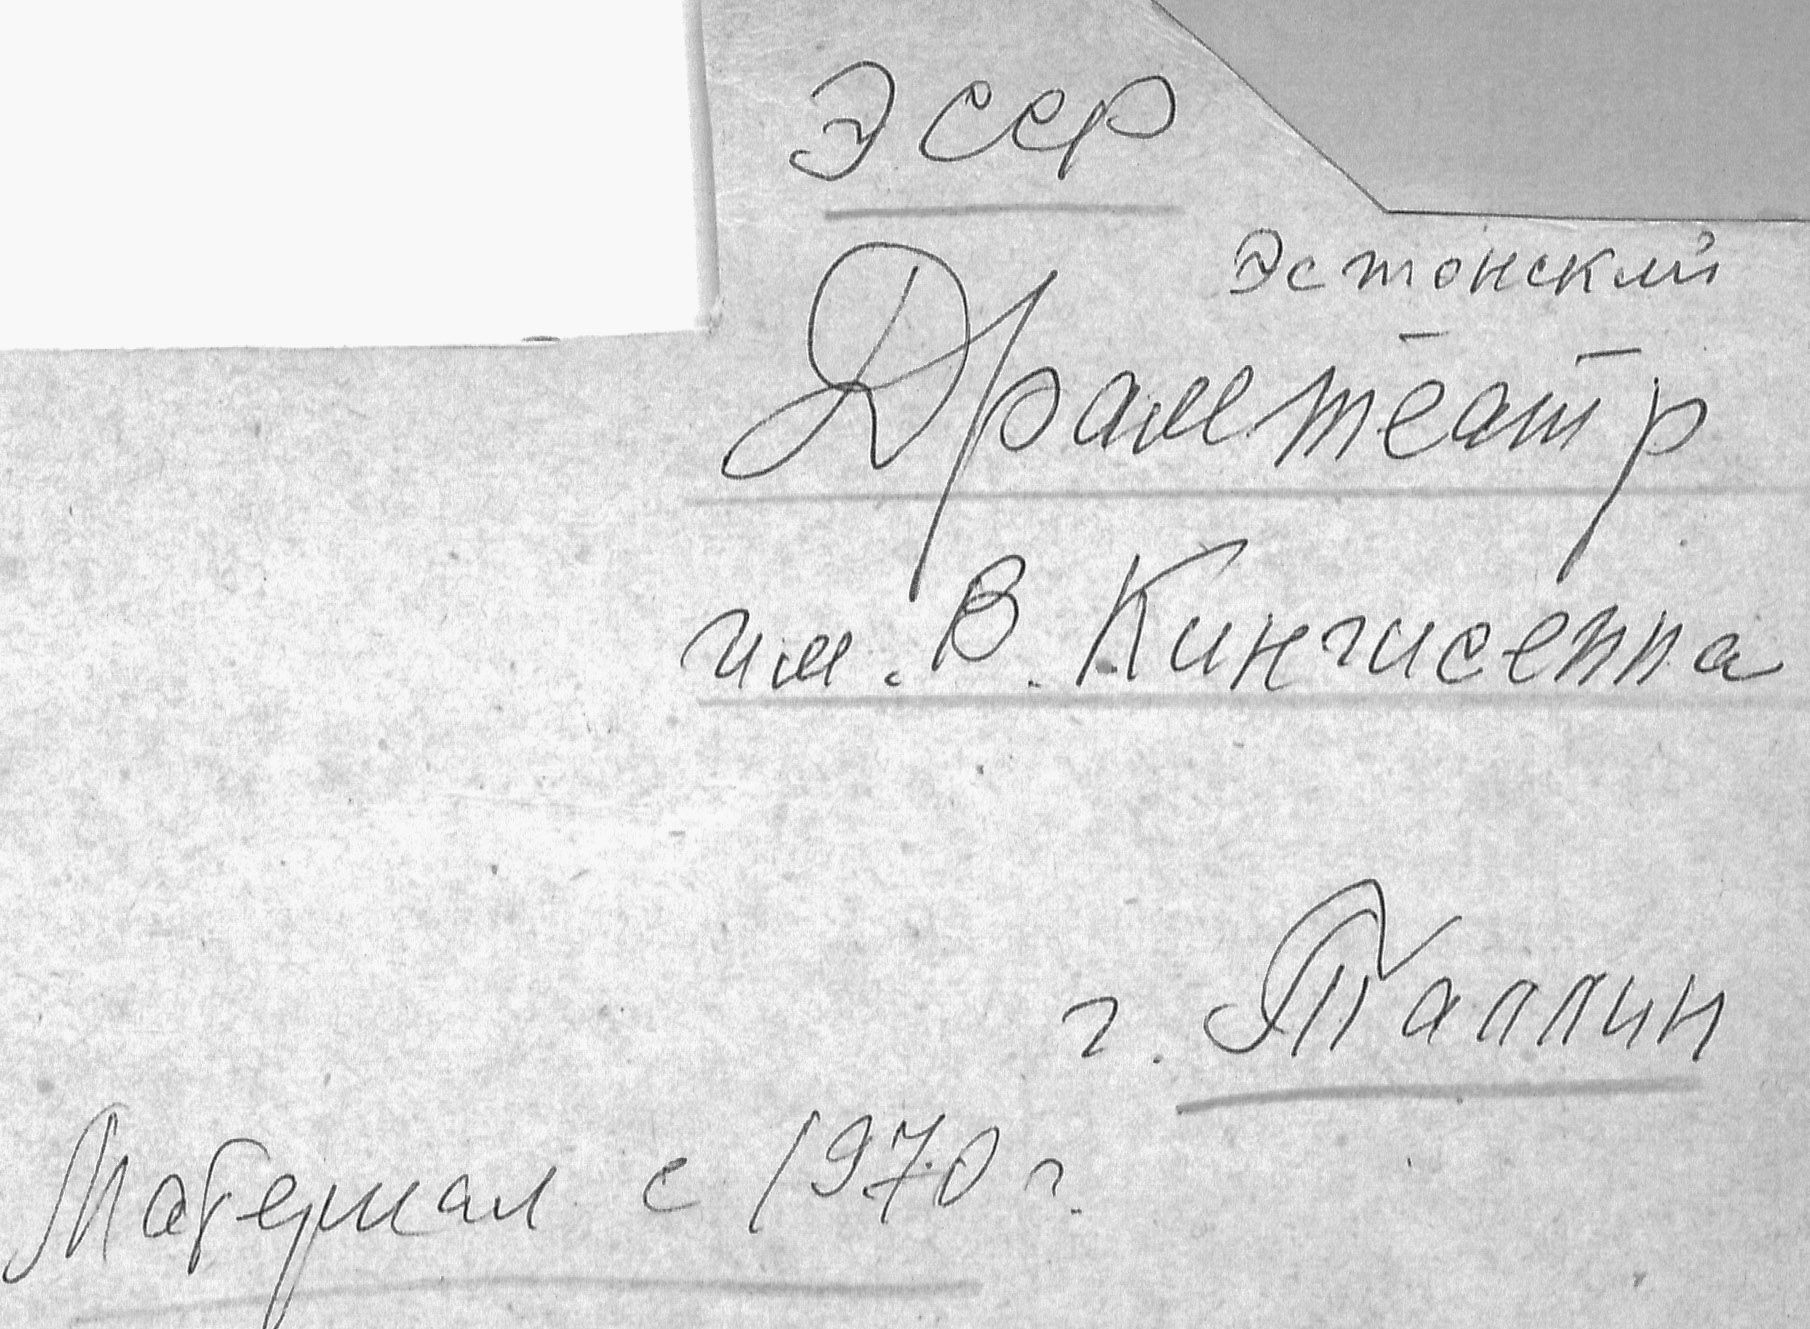 ЭССР
Эстонский
Драмтеатр
им. В. Кингисеппа
г. Таллин
Материал с 1970 г.